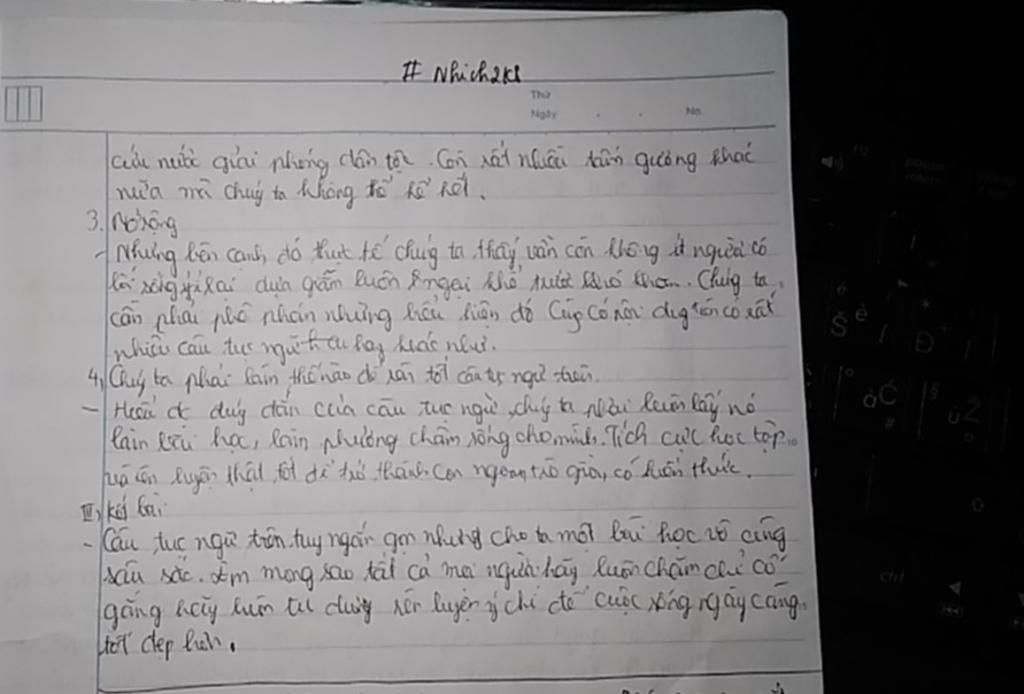 # Nhich2k8
Thứ
Ngày . . No.
cứu nước giải phóng dân tộc. Còn rất nhiều tấm gương khác
nữa mà chúng ta không thể kể hết.
3. Mở rộng
- Nhưng bên cạnh đó thực tế chúng ta thấy vẫn còn không ít người có
lối sống ỷ lại dựa dẫm luôn ngại khổ trước khó khăn. Chúng ta
cần phải phê phán những biểu hiện đó Cùng có nội dung trên có rất
nhiều câu tục ngữ hay khác như.
4, Chúng ta phải làm thế nào để tốt câu tục ngữ trên.
- Hiểu đc đúng đắn của câu tục ngữ, chúng ta phải luôn lấy nó
làm bài học, làm phương châm sống cho mình. Tích cực học tập
và rèn luyện thật tốt để trở thành con ngoan trò giỏi, có kiến thức.
III, Kết bài:
- Câu tục ngữ trên tuy ngắn gọn nhưng cho ta một bài học vô cùng
sâu sắc. Em mong sao tất cả mọi người hãy luôn chăm chỉ cố
gắng hãy luôn tu dưỡng rèn luyện ý chí để cuộc sống ngày càng
tốt đẹp hơn.
ctrl